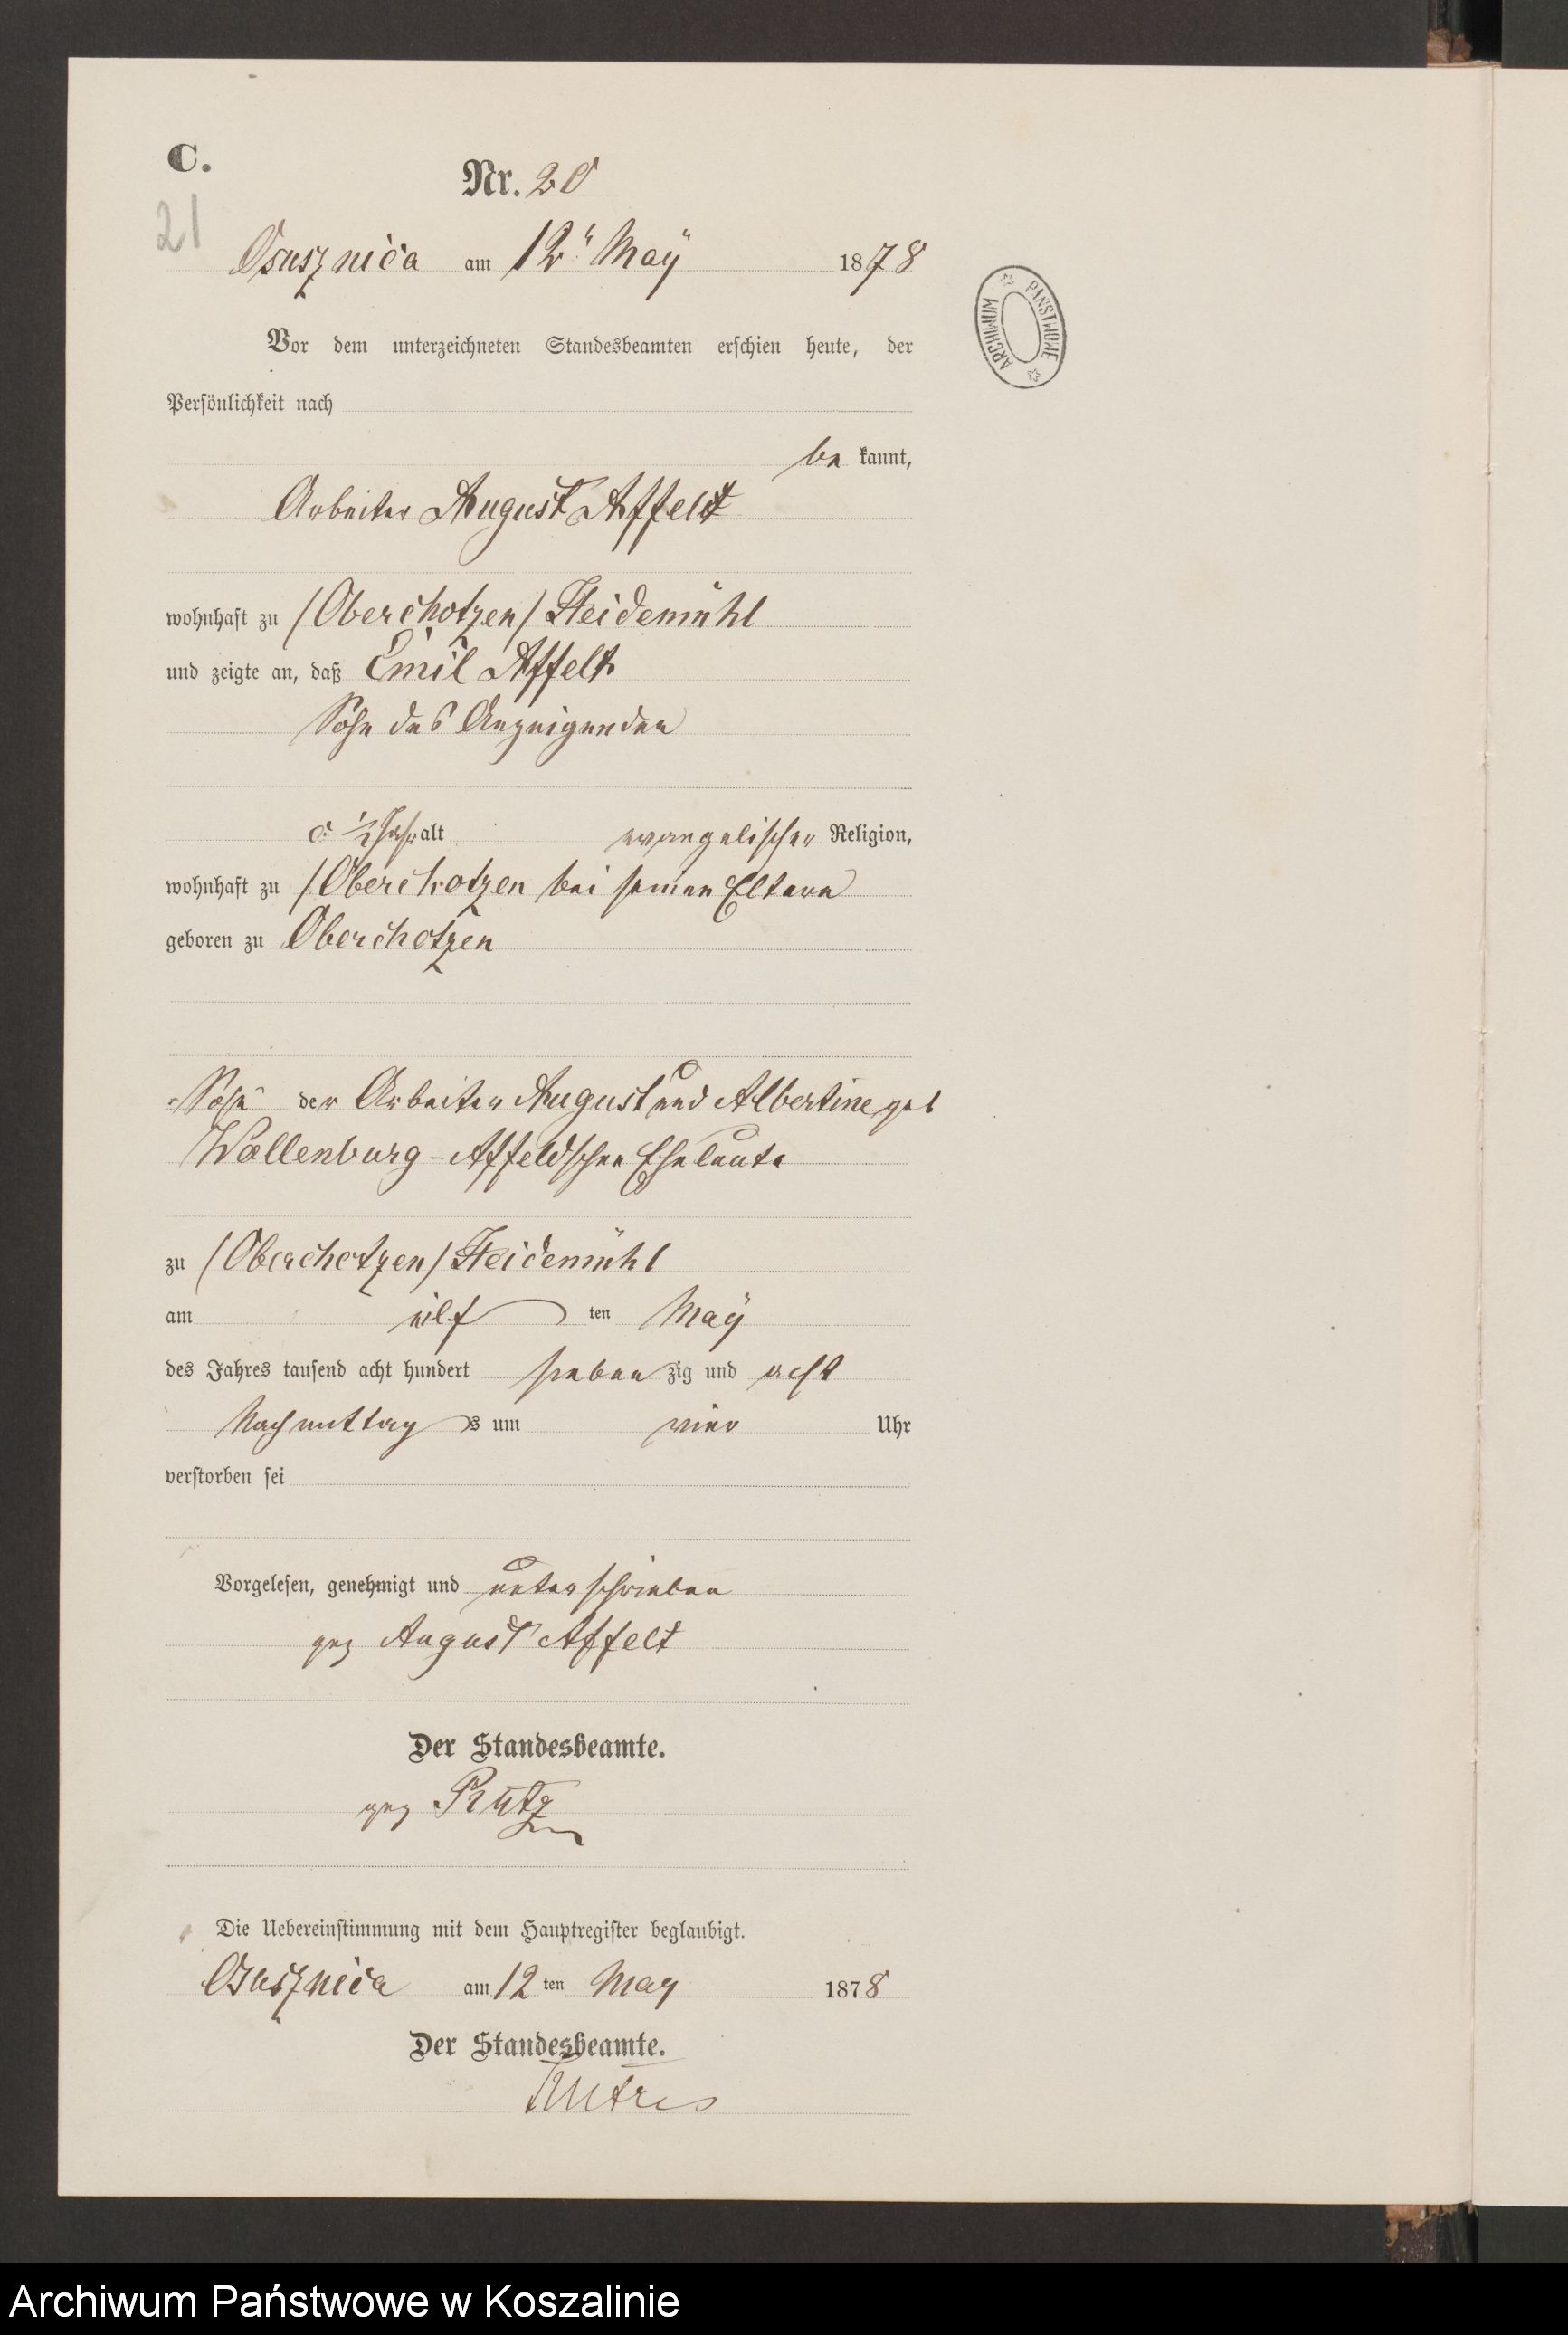 C.
Nr. 20
21
Osusznica am 12ᵗ May 1878
ARCHIWUM PAŃSTWOWE
Vor dem unterzeichneten Standesbeamten erschien heute, der
Persönlichkeit nach
be kannt,
Arbeiter August Affeldt
wohnhaft zu (Oberchotzen) Heidemühl
und zeigte an, daß Emil Affelt
Sohn des Anzeigenden
1/2 Jahr alt evangelischer Religion,
wohnhaft zu (Oberchotzen bei seinen Eltern
geboren zu Oberchotzen
Sohn der Arbeiter August und Albertine geb
Wollenburg-Affeldschen Eheleute
zu (Oberchotzen) Heidemühl
am eilf ten May
des Jahres tausend acht hundert sieben zig und acht
Nachmittag s um vier Uhr
verstorben sei
Vorgelesen, genehmigt und unterschrieben
gez August Affelt
Der Standesbeamte.
gez Rutz
Die Uebereinstimmung mit dem Hauptregister beglaubigt.
Osusznica am 12 ten May 1878
Der Standesbeamte.
Archiwum Państwowe w Koszalinie